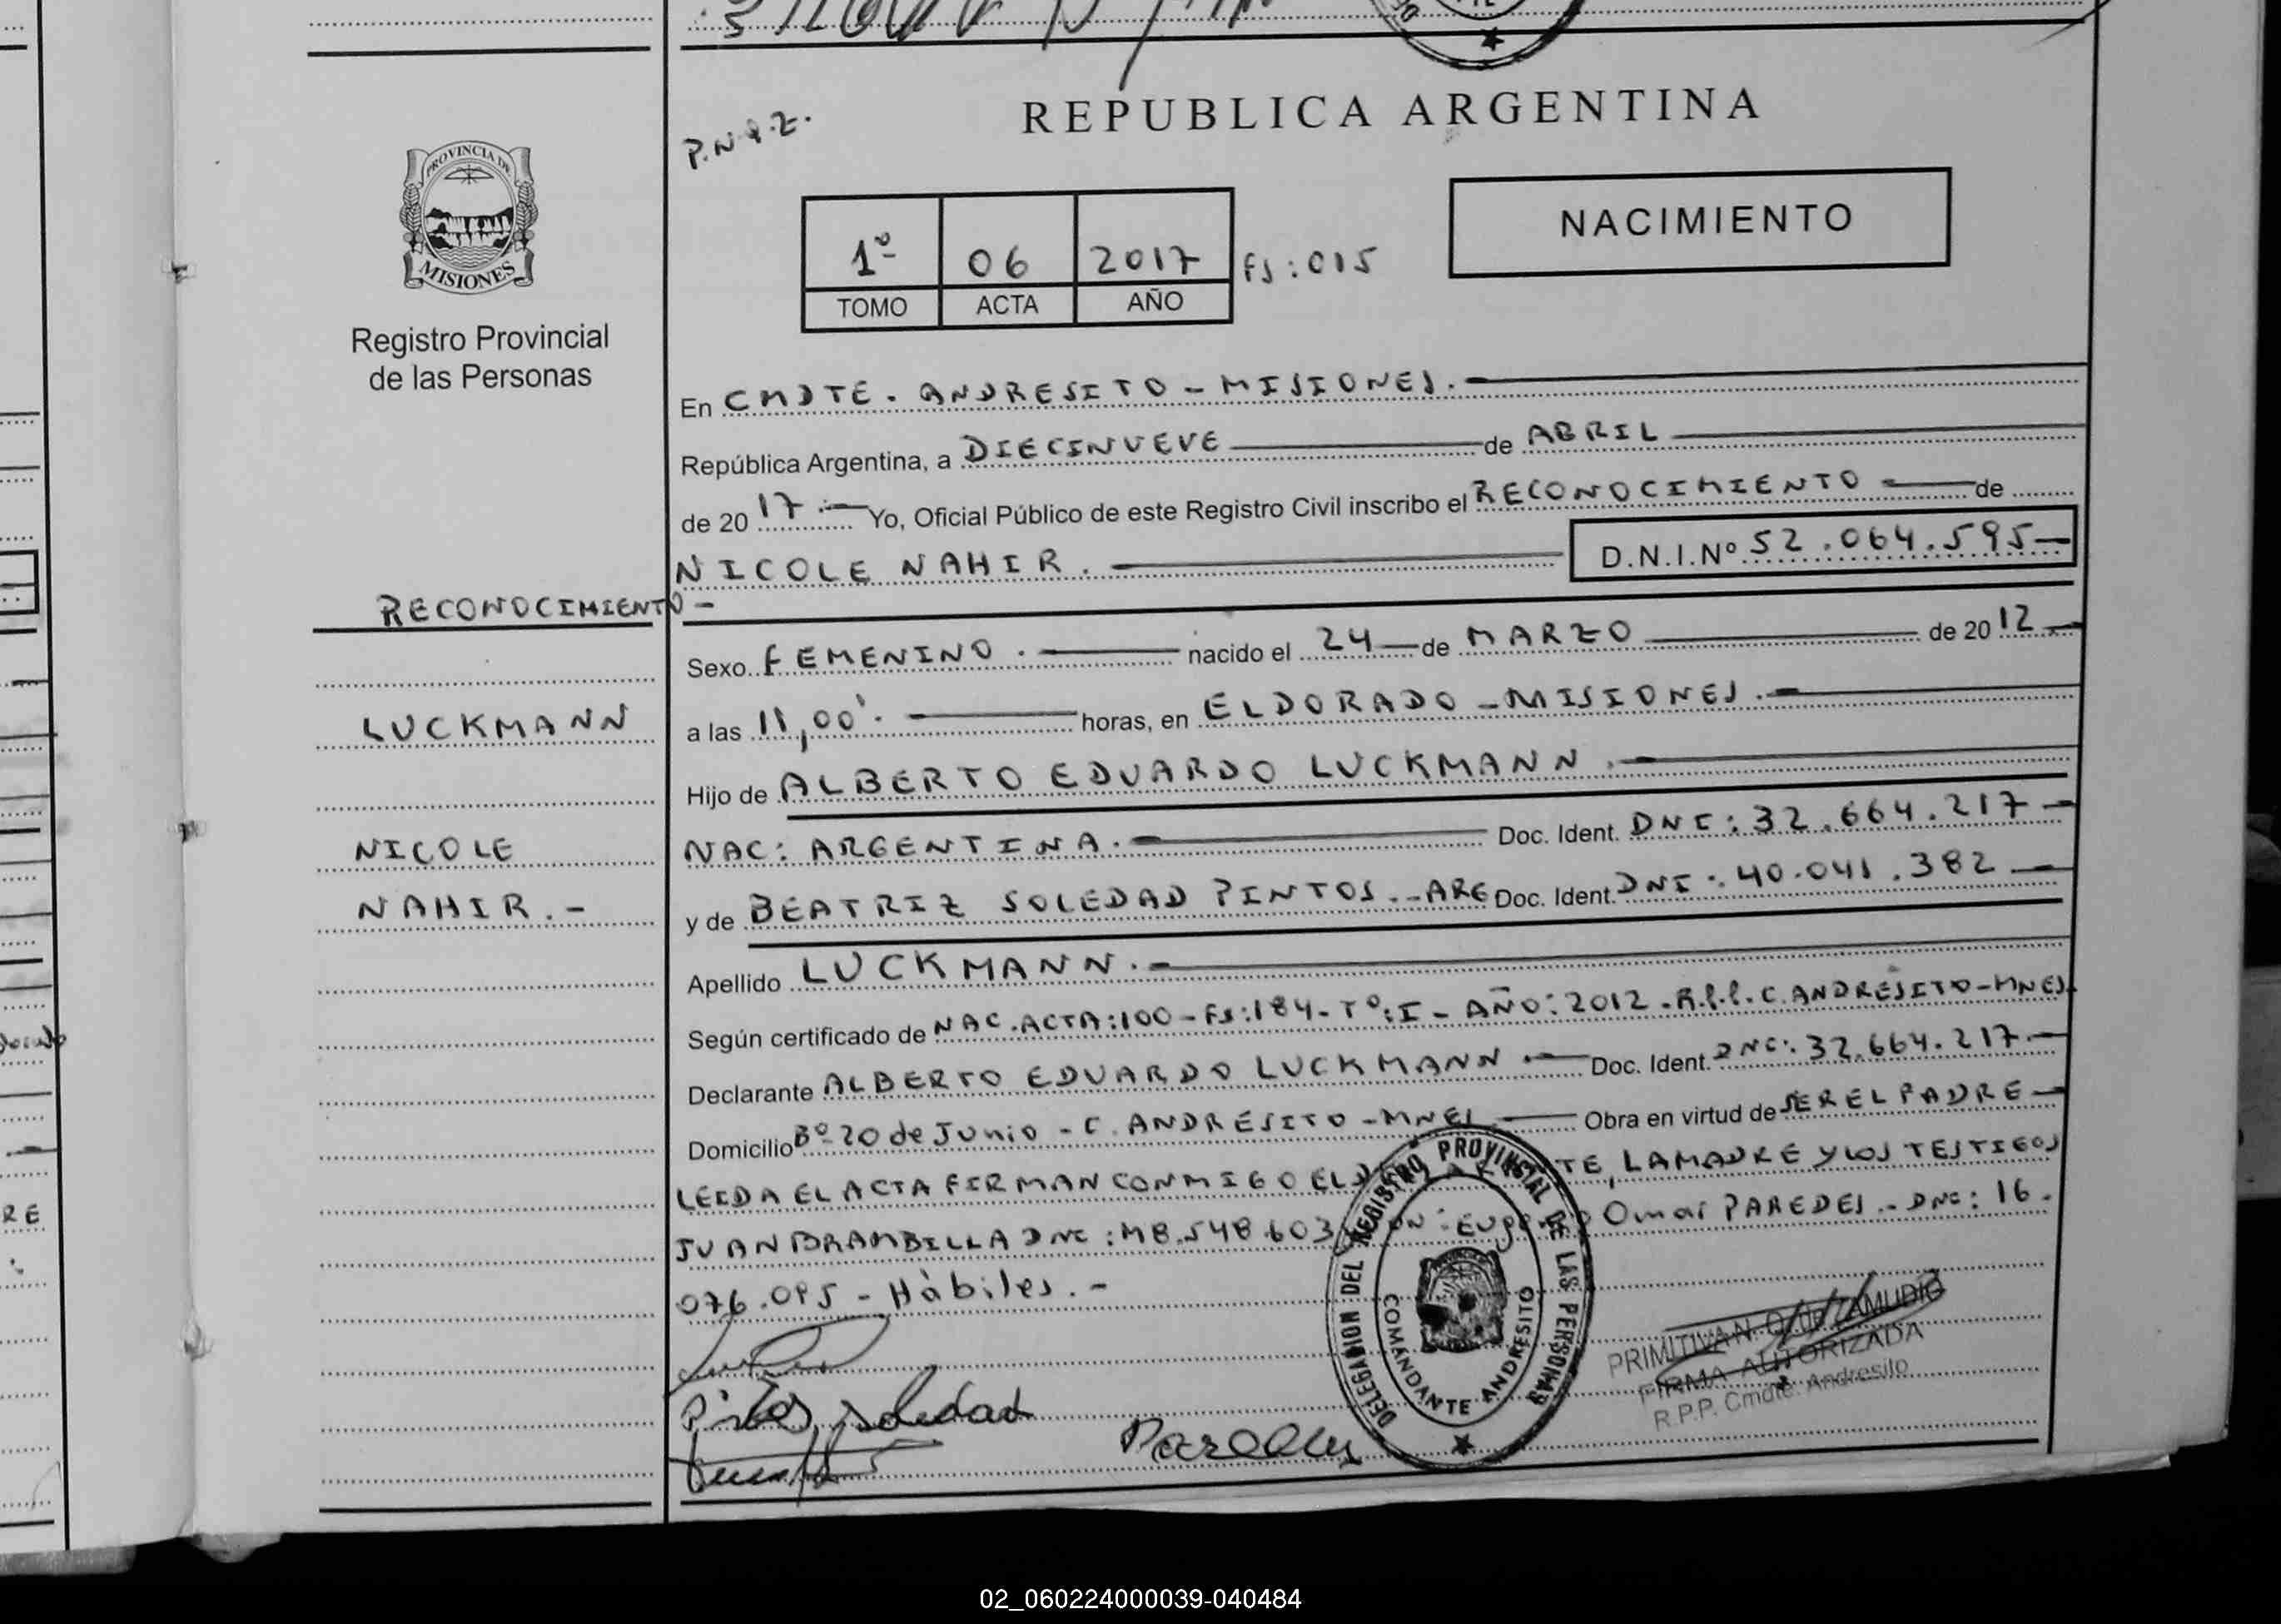 P.N
REPUBLICA ARGENTINA
PROVINCIA DE
MISIONES
Registro Provincial
de las Personas
1º 06 2017 Fs: 015
TOMO ACTA AÑO
NACIMIENTO
En CMDTE. ANDRESITO - MISIONES. -
República Argentina, a DIECINUEVE de ABRIL
de 20 17 .- Yo, Oficial Público de este Registro Civil inscribo el RECONOCIMIENTO - de
NICOLE NAHIR. - D.N.I.Nº 52.064.595 -
RECONOCIMIENTO -
Sexo FEMENINO . - nacido el 24 - de MARZO - de 20 12 -
LUCKMANN
a las 11,00'. - horas, en ELDORADO - MISIONES . -
Hijo de ALBERTO EDUARDO LUCKMANN . -
NICOLE
NAC: ARGENTINA. - Doc. Ident. DNI: 32.664.217 -
NAHIR. -
y de BEATRIZ SOLEDAD PINTOS. - ARG Doc. Ident. DNI: 40.041.382 -
Apellido LUCKMANN. -
Según certificado de NAC. ACTA: 100 - Fs: 184 - Tº: I - AÑO: 2012 - R.P.P. C. ANDRESITO - MNES.
Declarante ALBERTO EDUARDO LUCKMANN . - Doc. Ident. DNI: 32.664.217. -
Domicilio Bº 20 de Junio - C. ANDRESITO - MNES - Obra en virtud de SER EL PADRE -
LEIDA EL ACTA FIRMAN CONMIGO EL TE, LA MADRE Y LOS TESTIGOS
JUAN BRAMBILLA DNI: M8.548.603 Eugenio Omar PAREDES. - DNI: 16.
076.095 - Hàbiles. -
DELEGACION DEL REGISTRO PROVINCIAL DE LAS PERSONAS
COMANDANTE ANDRESITO
PRIMITIVA N. ZAMUDIO
FIRMA AUTORIZADA
R.P.P. Cmdte. Andresito
Pintos Soledad
Paredes
02_060224000039-040484